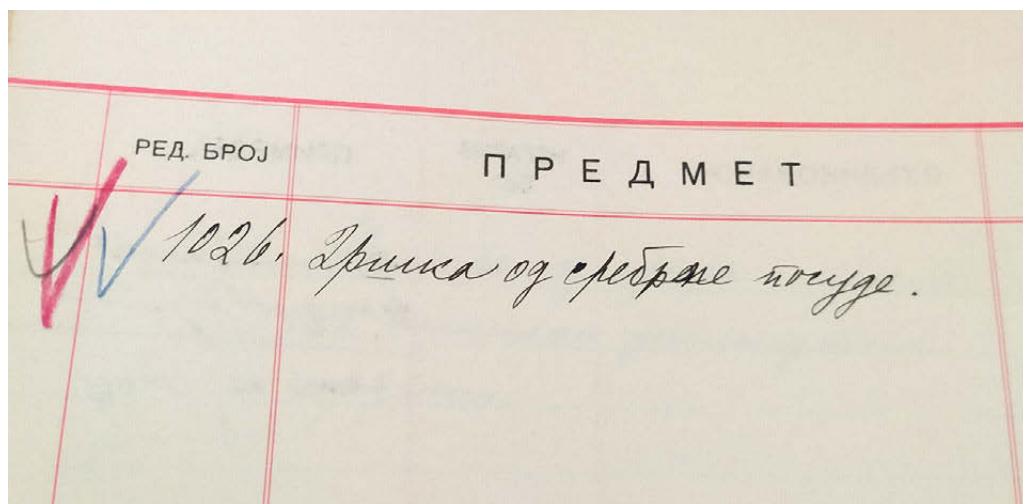 РЕД. БРОЈ ПРЕДМЕТ
1026. Дршка од сребрне посуде.